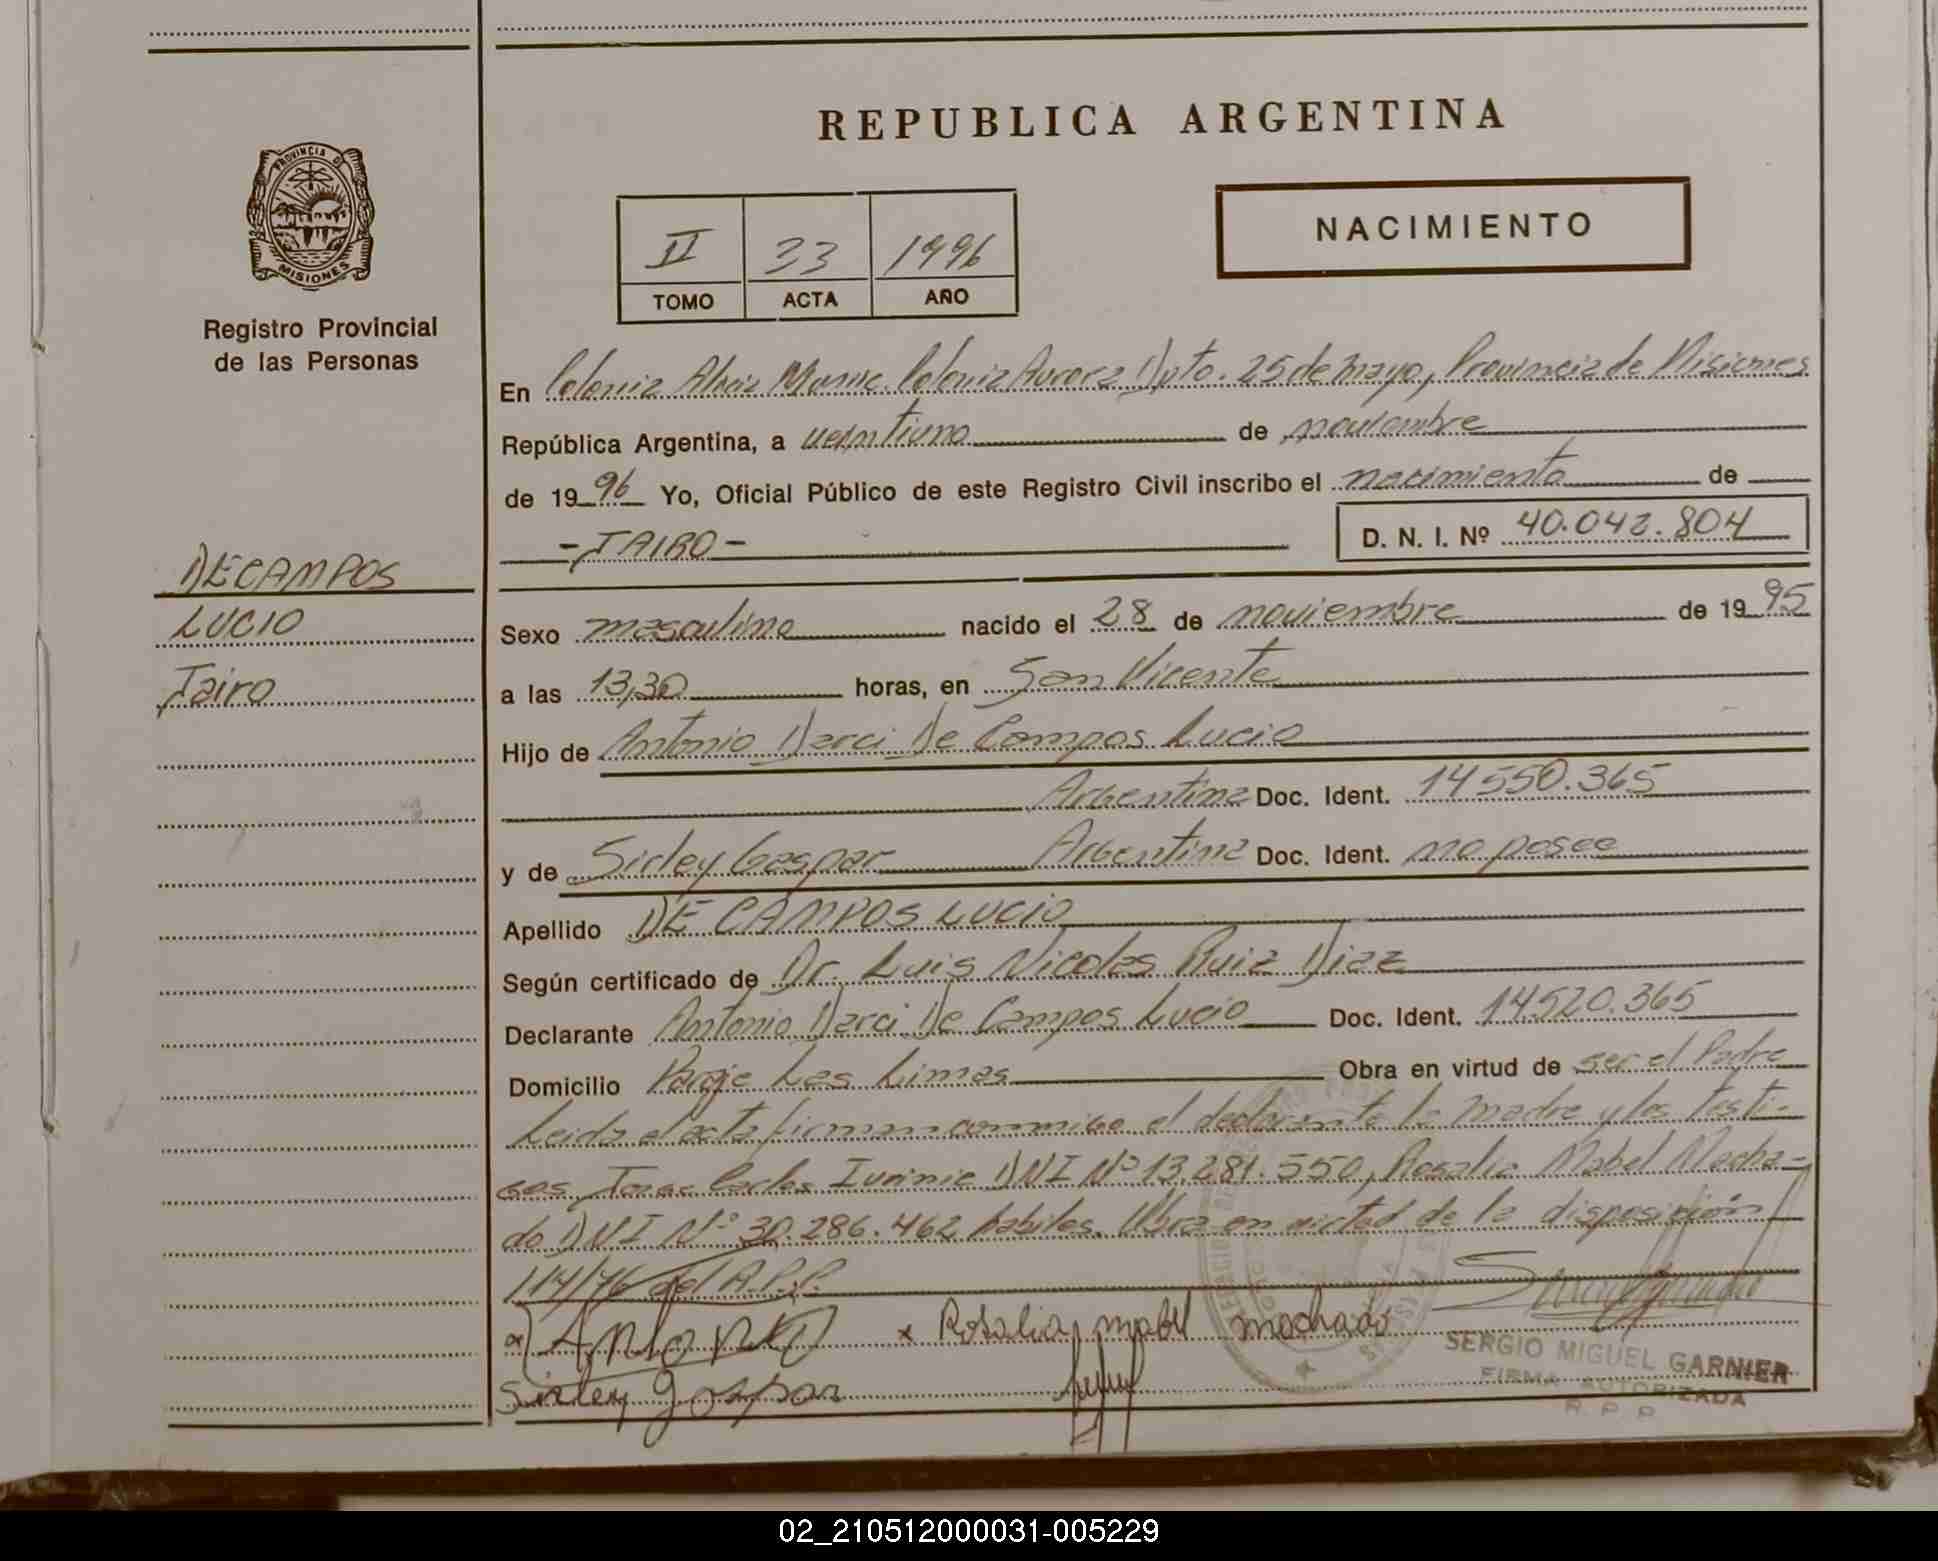 REPUBLICA ARGENTINA
PROVINCIA DE
MISIONES
Registro Provincial
de las Personas
II 33 1996
TOMO ACTA AÑO
NACIMIENTO
En Colonia Alicia Colonia Aurora Dpto. 25 de mayo, Provincia de Misiones
República Argentina, a veintiuno de noviembre
de 1996 Yo, Oficial Público de este Registro Civil inscribo el nacimiento de
-JAIRO- D. N. I. Nº 40.042.804
DE CAMPOS
LUCIO
Jairo
Sexo masculino nacido el 28 de noviembre de 1995
a las 13,30 horas, en San Vicente
Hijo de Antonio Darci De Campos Lucio
Argentina Doc. Ident. 14550.365
y de Sirley Gaspar Argentina Doc. Ident. no posee
Apellido DE CAMPOS LUCIO
Según certificado de Dr. Luis Nicolas Ruiz Diaz
Declarante Antonio Darci De Campos Lucio Doc. Ident. 14520.365
Domicilio Paraje Las Limas Obra en virtud de ser el Padre
Leida el acta firman conmigo el declarante la madre y los testi-
gos Jorge Carlos DNI Nº 13.281.550, Rosalia Mabel Macha-
do DNI Nº 30.286.462 habiles. Obra en virtud de la disposición
114/76 del R.P.P.
x Antonio x Rosalia mabel machado
Sirley gaspar
SERGIO MIGUEL GARNIER
FIRMA AUTORIZADA
R. P. P.
02_210512000031-005229